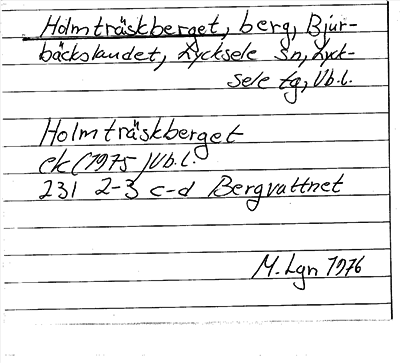 Holmträskberget, berg, Bjur-
bäckslandet, Lycksele sn, Lyck-
sele tg, Vb.l.
Holmträskberget
ek (1975) Vb.l.
231 2-3 c-d Bergvattnet
M. Lgn 1976